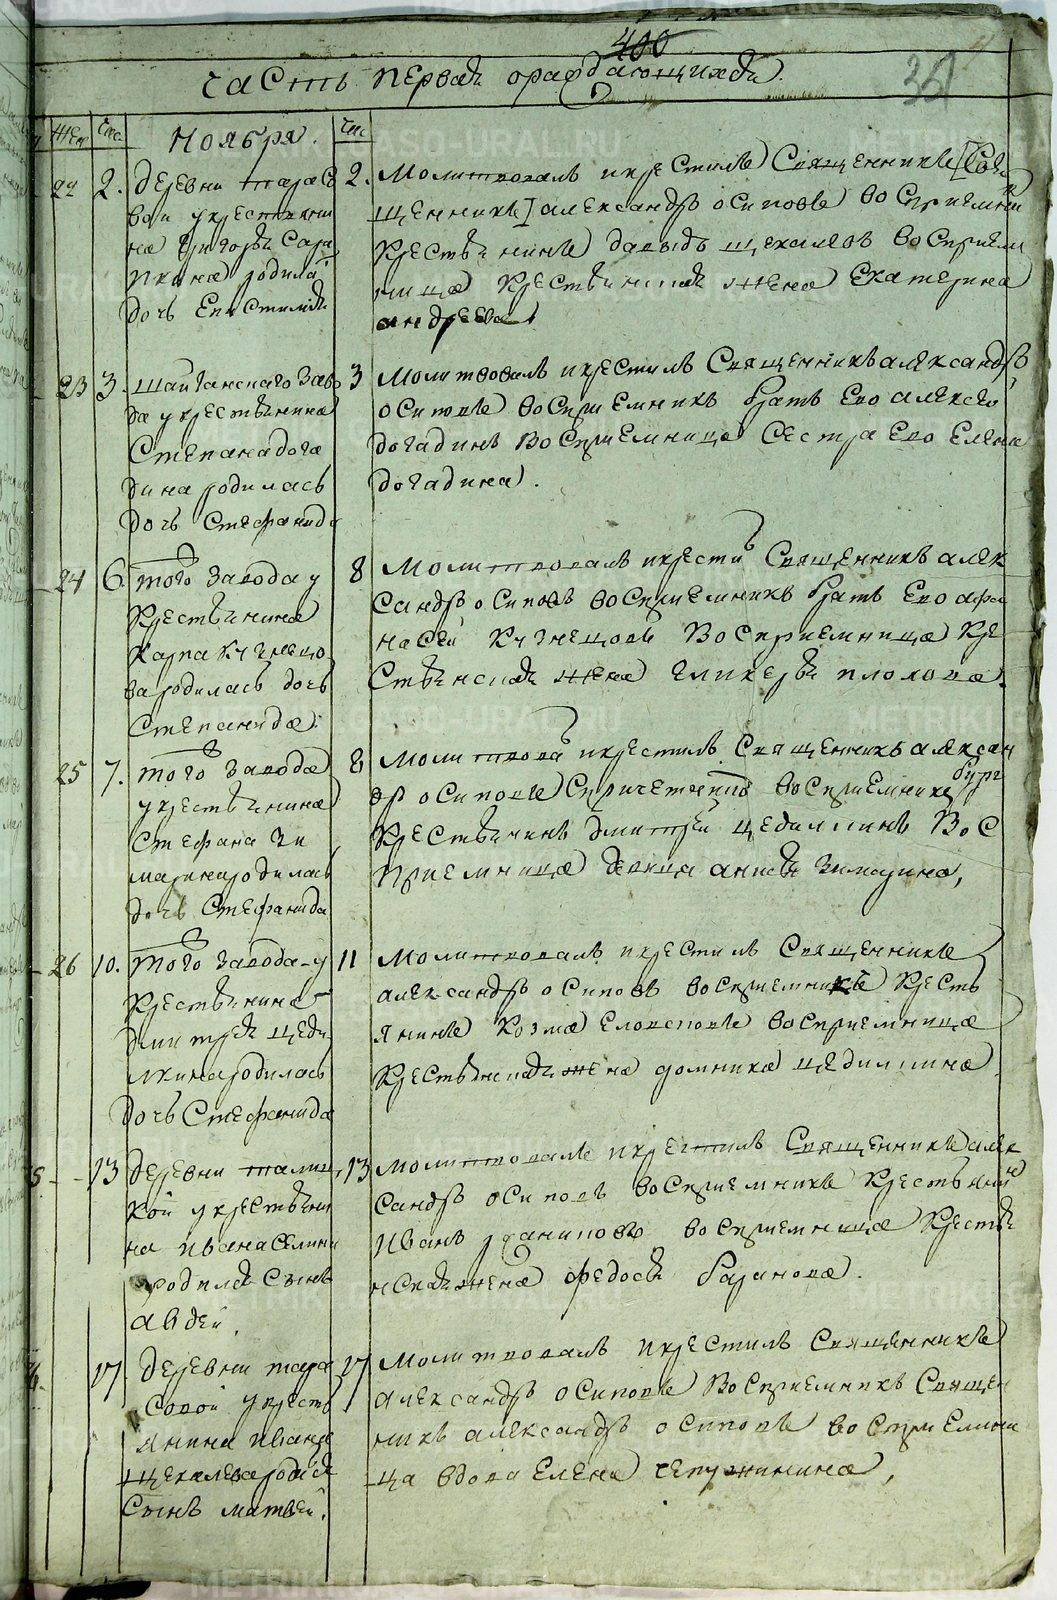 400
часть первая ораждающихся.
351
жен
чис.
Ноября.
чис
22
2.
деревни тарасо
вой укрестияни
на григорья Сара
пкина родила
дочь Епистимия
2.
Молитвовалъ икрестилъ Священникъ [Свя
щенникъ] александръ осиповъ восприемни
крестьянинъ давыдъ щекалевъ восприем
ница крестьянская жена Екатерина
андреева
23
3.
шайтанского заво
да укрестьянина
Степана дога
дина родилась
дочь Стефанида
3
молитвовалъ икрестилъ Священникъ александръ
осиповъ восприемникъ братъ Ево алексей
догадинъ восприемница сестра Ево Елена
догадина.
24
6
того завода у
крестьянина
карпа кузнецо
ва родилась дочь
Степанида:
8
Молитвовалъ икрести Священникъ алек
сандръ осиповъ восприемникъ братъ Ево афа
насей кузнецовъ восприемница кре
стьянская жена гликерья плохова.
25
7.
того завода
укрестьянина
Стефана зи
марина родилась
дочь Стефанида
8
Молитвова икрестилъ Священникъ алексан
др осиповъ Спричетникъ восприемникъ
крестьянинъ дмитрей цедилкинъ вос
приемница девица анисья зимарина,
26
10.
того завода у
крестьянина
дмитрея цеди
лкина родилась
дочь Стефанида
11
Молитвовалъ икрестилъ Священникъ
александръ осиповъ восприемникъ кресть
янинъ козма Еловсковъ восприемница
крестьянская жена домника цедилкина
5
13
деревни талиц
кой укрестьяни
на ивана Селина
родился Сынъ
авдей,
13
молитвовалъ икрестилъ Священникъ алек
сандръ осиповъ восприемникъ крестьянин
иванъ восприемница крестья
нская жена федосья баранова.
17
деревни тара
совой укресть
янина ивана
щекалева родился
Сынъ матвей.
17
Молитвовалъ икрестилъ Священникъ
александръ осиповъ восприемникъ Священ
никъ александръ осиповъ восприемни
ца вдова Елена